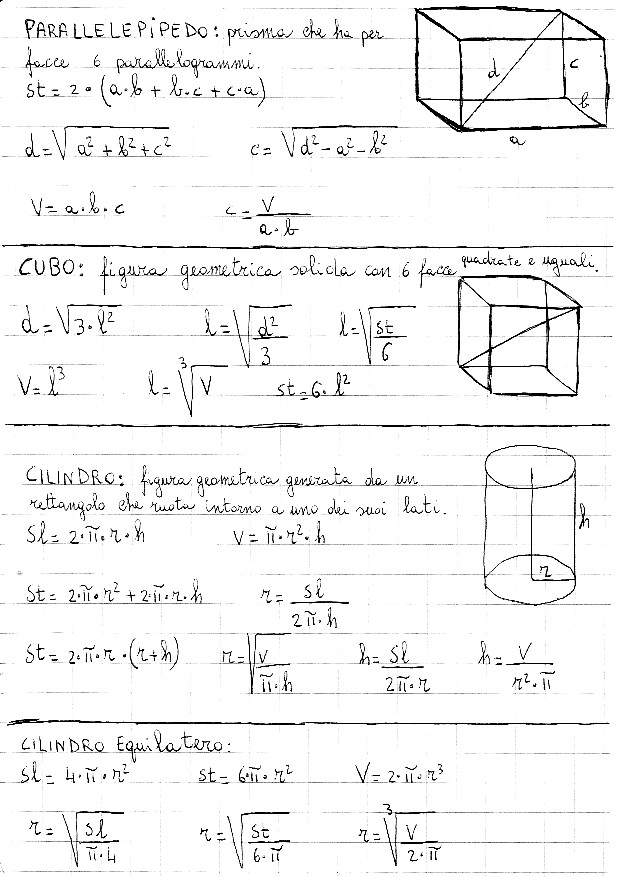 PARALLELEPIPEDO: prisma che ha per
facce 6 parallelogrammi.
St = 2 • (a•b + b•c + c•a)
d = √(a² + b² + c²) c = √(d² - a² - b²)
V = a•b•c c = V / (a•b)
d c b a
CUBO: figura geometrica solida con 6 facce quadrate e uguali.
d = √(3•l²) l = √(d² / 3) l = √(St / 6)
V = l³ l = ³√V St = 6•l²
CILINDRO: figura geometrica generata da un
rettangolo che ruota intorno a uno dei suoi lati.
Sl = 2•π•r•h V = π•r²•h
h r
St = 2•π•r² + 2•π•r•h r = Sl / (2π•h)
St = 2•π•r•(r+h) r = √(V / (π•h)) h = Sl / (2π•r) h = V / (r²•π)
CILINDRO Equilatero:
Sl = 4•π•r² St = 6•π•r² V = 2•π•r³
r = √(Sl / (π•4)) r = √(St / (6•π)) r = ³√(V / (2•π))